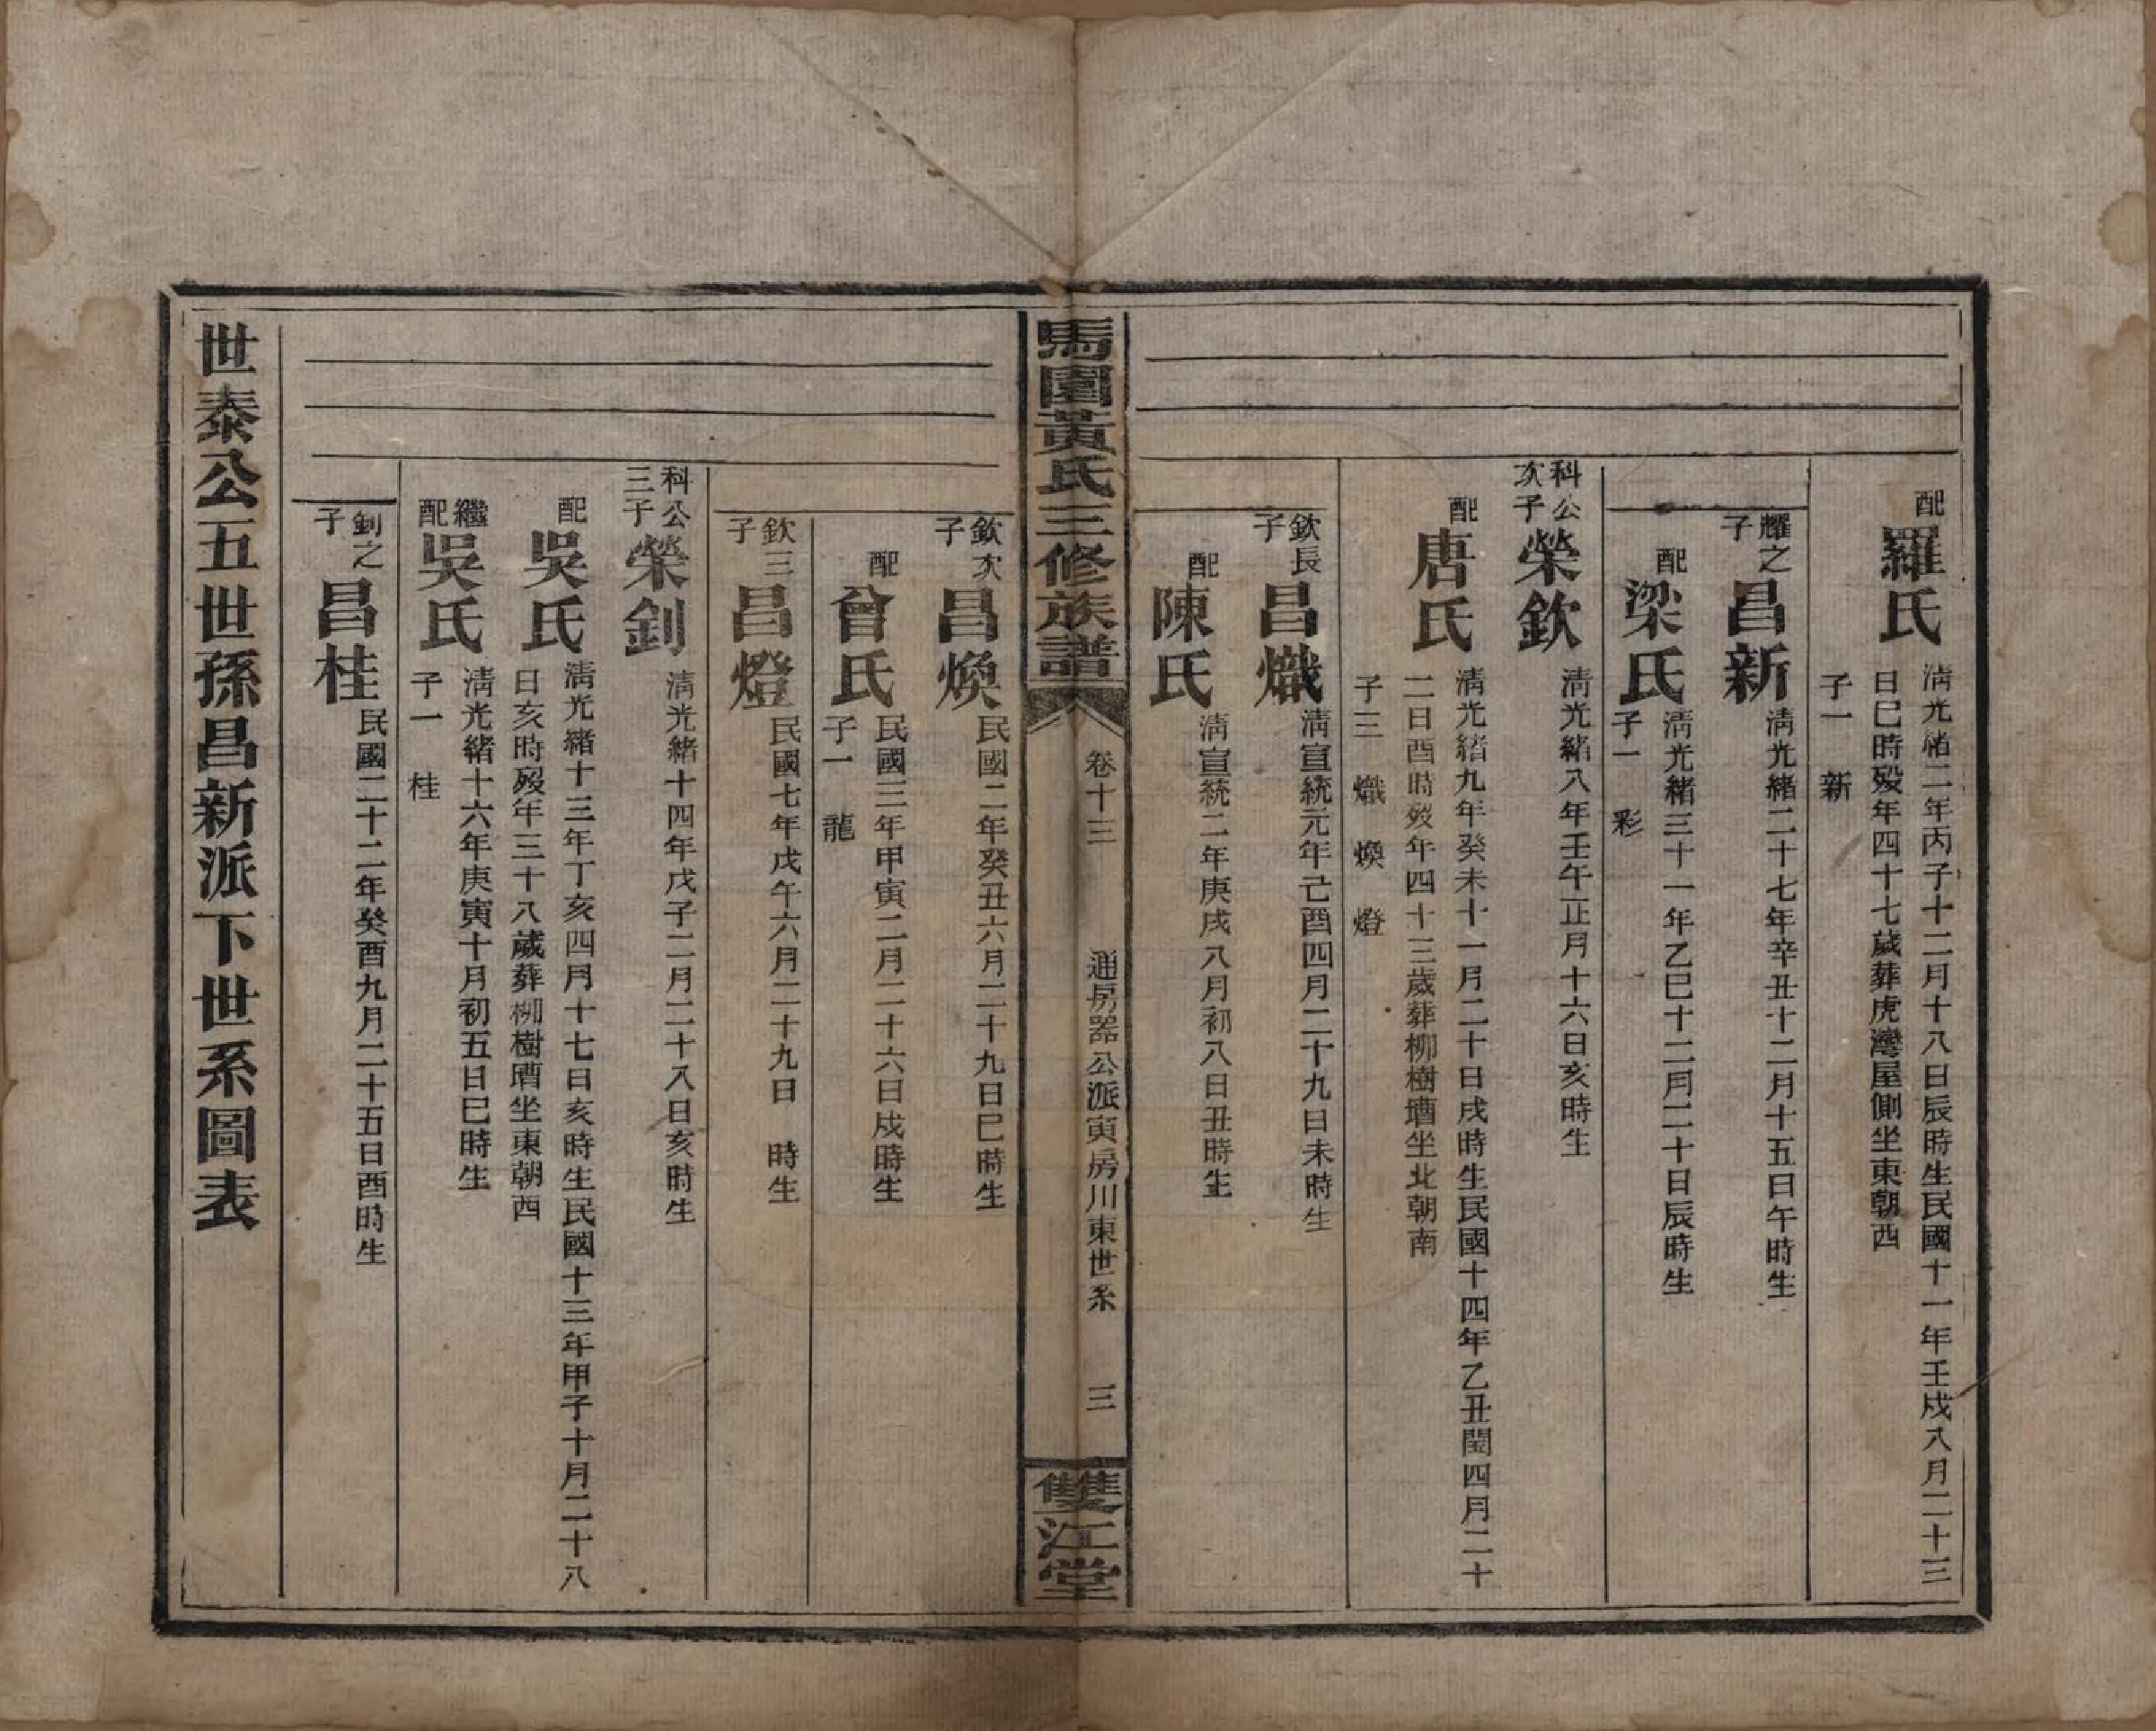 配
羅氏
清光緒二年丙子十二月十八日辰時生民國十一年壬戌八月二十三
日巳時歿年四十七歲葬虎灣屋側坐東朝西
子一　新
耀之
子
昌新
清光緒二十七年辛丑十二月十五日午時生
配
梁氏
清光緒三十一年乙巳十二月二十日辰時生
子一　彩
科公
次子
榮欽
清光緒八年壬午正月十六日亥時生
配
唐氏
清光緒九年癸未十一月二十日戌時生民國十四年乙丑閏四月二十
二日酉時歿年四十三歲葬柳樹壋坐北朝南
子三　熾　煥　燈
欽長
子
昌熾
清宣統元年己酉四月二十九日未時生
配
陳氏
清宣統二年庚戌八月初八日丑時生
馬園黃氏三修族譜
卷十三
通房器公派寅房川東世系
三
雙江堂
欽次
子
昌煥
民國二年癸丑六月二十九日巳時生
配
曾氏
民國三年甲寅二月二十六日戌時生
子一　龍
欽三
子
昌燈
民國七年戊午六月二十九日　時生
科公
三子
榮釗
清光緒十四年戊子二月二十八日亥時生
配
吳氏
清光緒十三年丁亥四月十七日亥時生民國十三年甲子十月二十八
日亥時歿年三十八歲葬柳樹壋坐東朝西
繼
配
吳氏
清光緒十六年庚寅十月初五日巳時生
子一　桂
釗之
子
昌桂
民國二十二年癸酉九月二十五日酉時生
世泰公五世孫昌新派下世系圖表